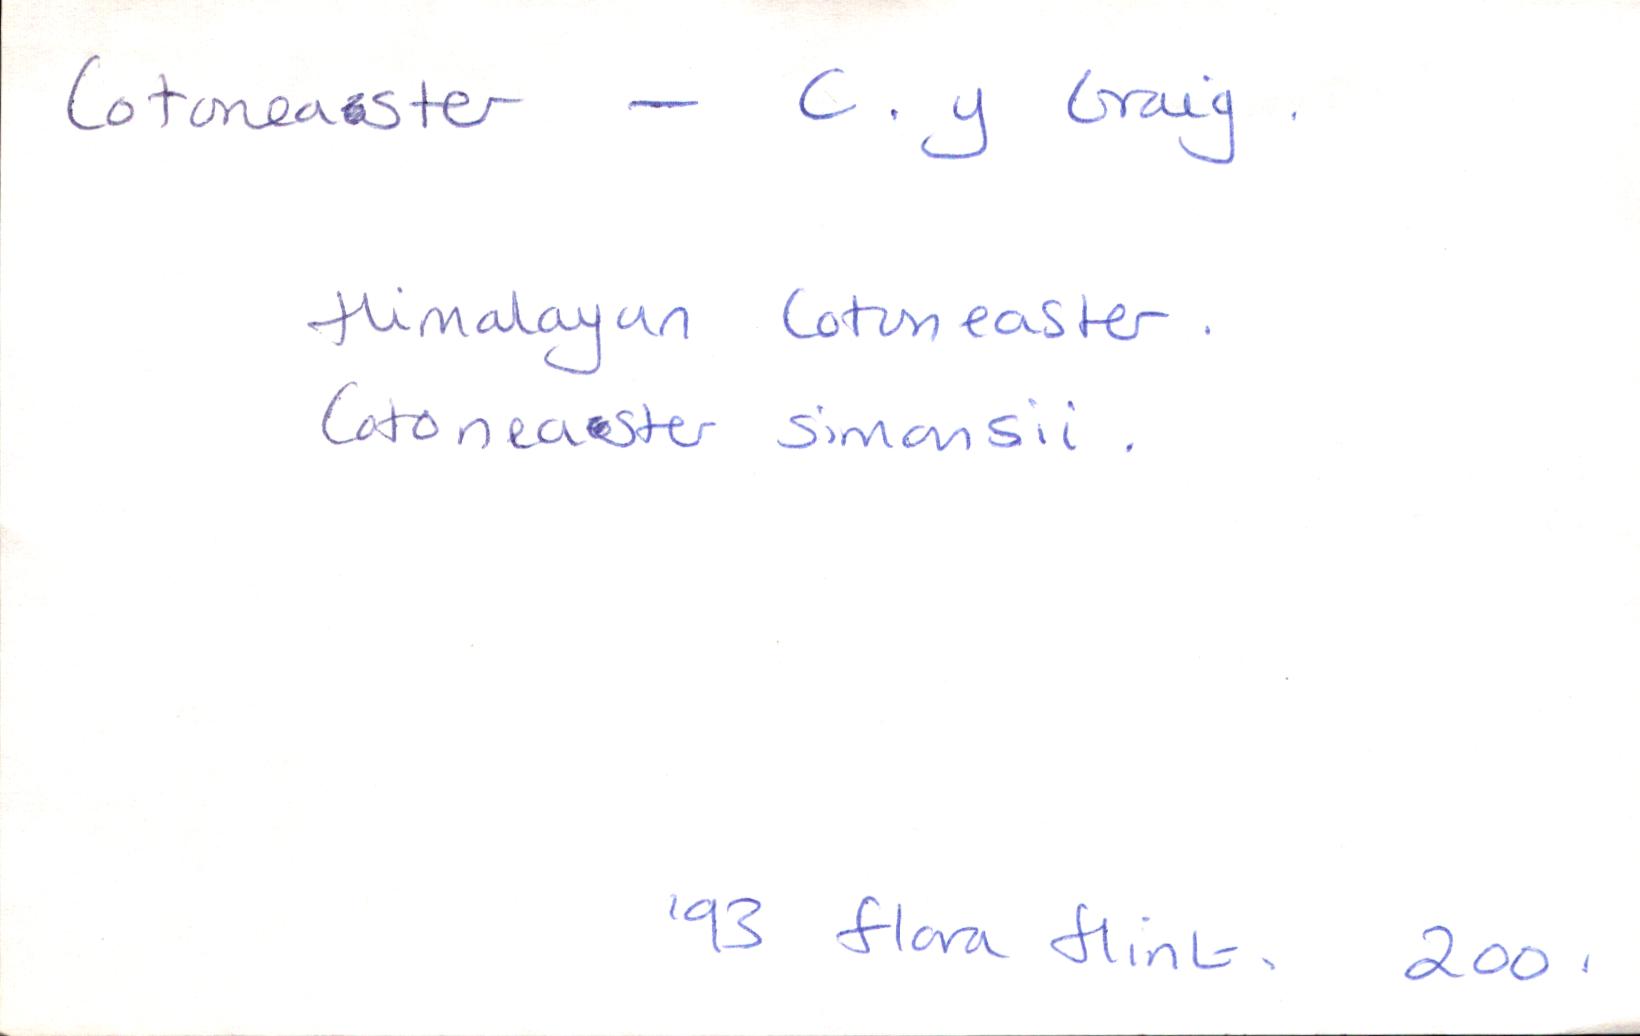 Cotoneaster — C. y Graig.
Himalayan Cotoneaster.
Cotoneaster simonsii.
'93 flora flint. 200.